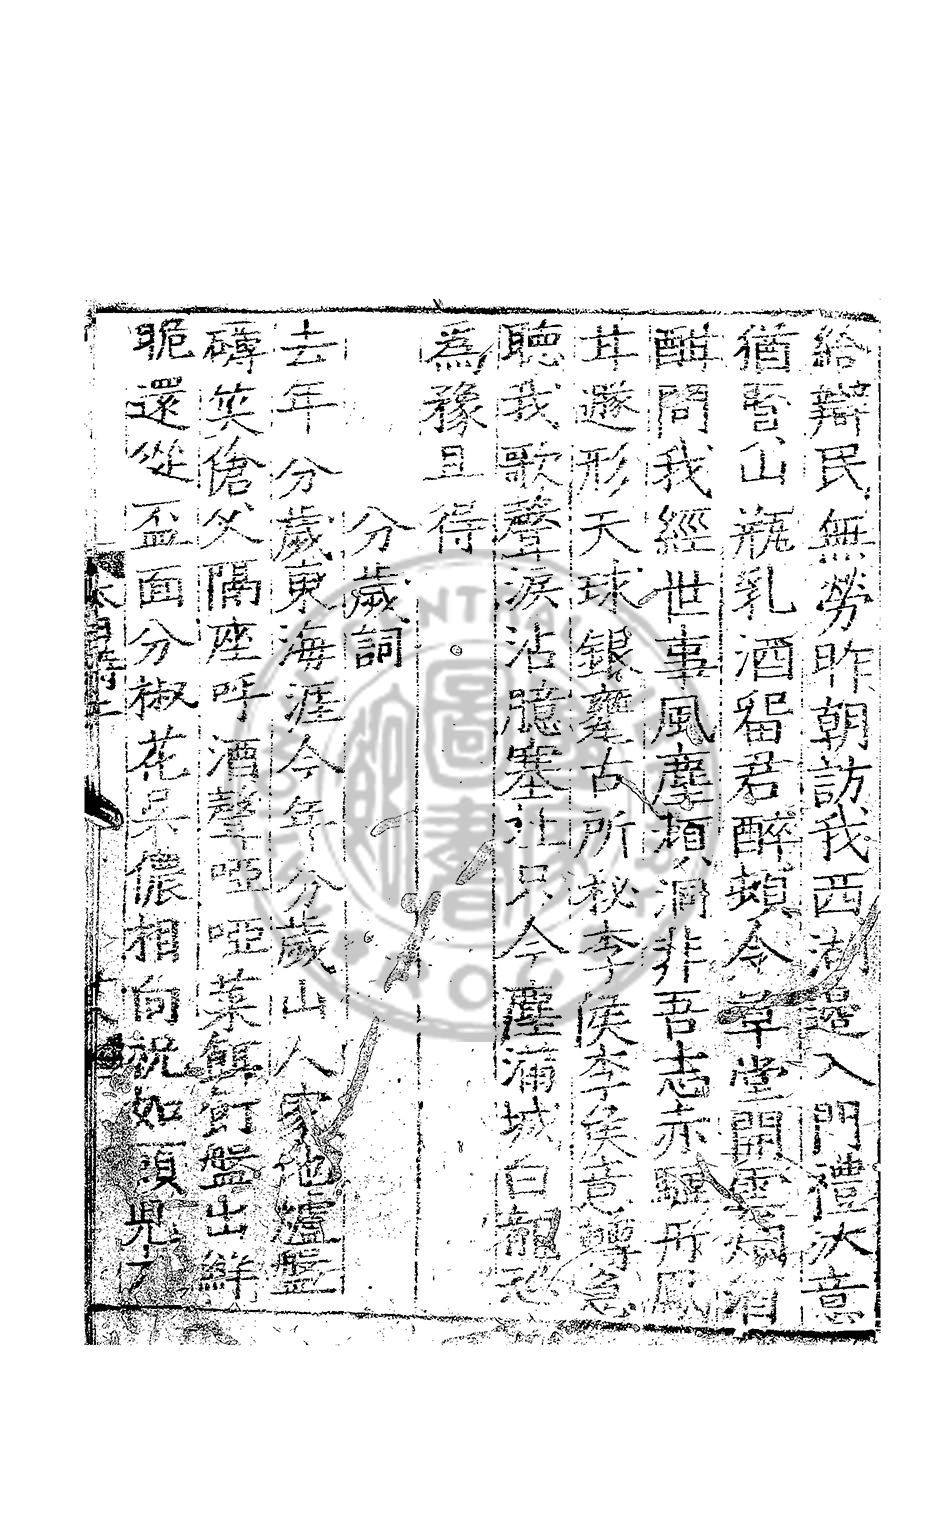 給辯民無勞昨朝訪我西湖邊入門禮大意
猶㬪山瓶乳酒留君醉頼令草堂開雲
酣問我經世事風塵澒洞非吾志赤驥形
廾遂形天球銀甕古所秘李侯李侯意轉急
聽我歌聲淚沾臆塞上只今塵滿城白龍恐
為豫且得
分歲詞
去年分歲東海涯今年分歲山人家地爐盤
礴笑傖父隔座呼酒聲啞啞菓餌飣盤出鮮
脆還從盃面分椒花吳儂相向祝如頭兒